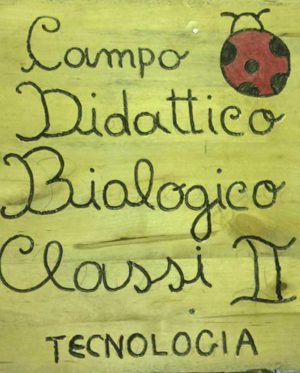 Campo
Didattico
Bialogico
Classi II
TECNOLOGIA